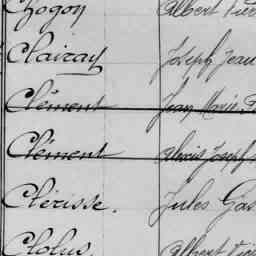 Chogon Albert
Clairay Joseph Jean
Clément Jean Marie
Clément Alexis Joseph
Clérisse. Jules Gas
Clolus Albert